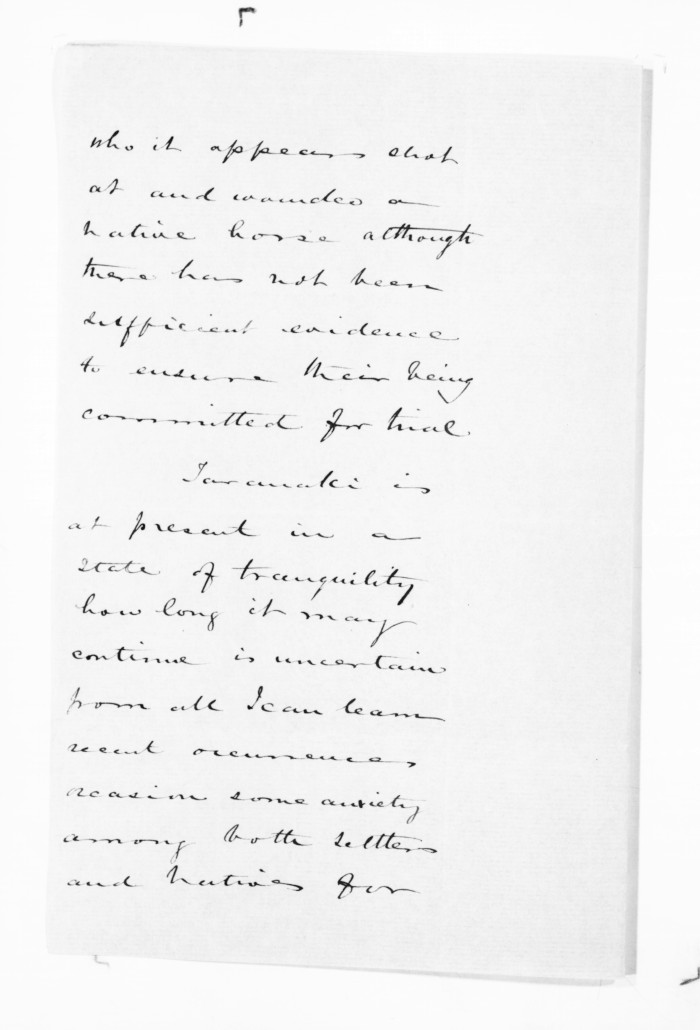 who it appears shot
at and wounded a
native horse although
there has not been
sufficient evidence
to ensure their being
committed for trial
Taranaki is
at present in a
state of tranquility
how long it may
continue is uncertain
from all I can learn
recent occurrences
occasion some anxiety
among both settlers
and Natives for